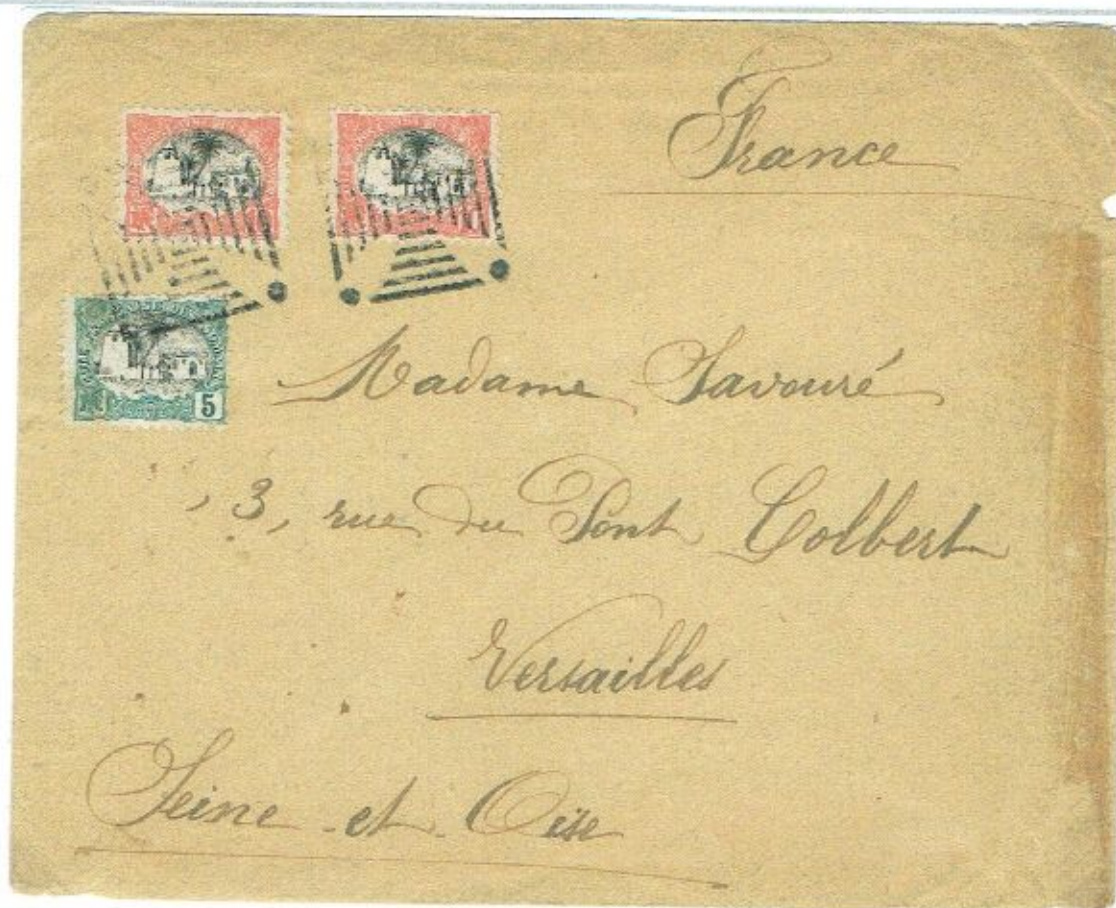 France
5
Madame Savouré
3, rue du Pont Colbert
Versailles
Seine et Oise